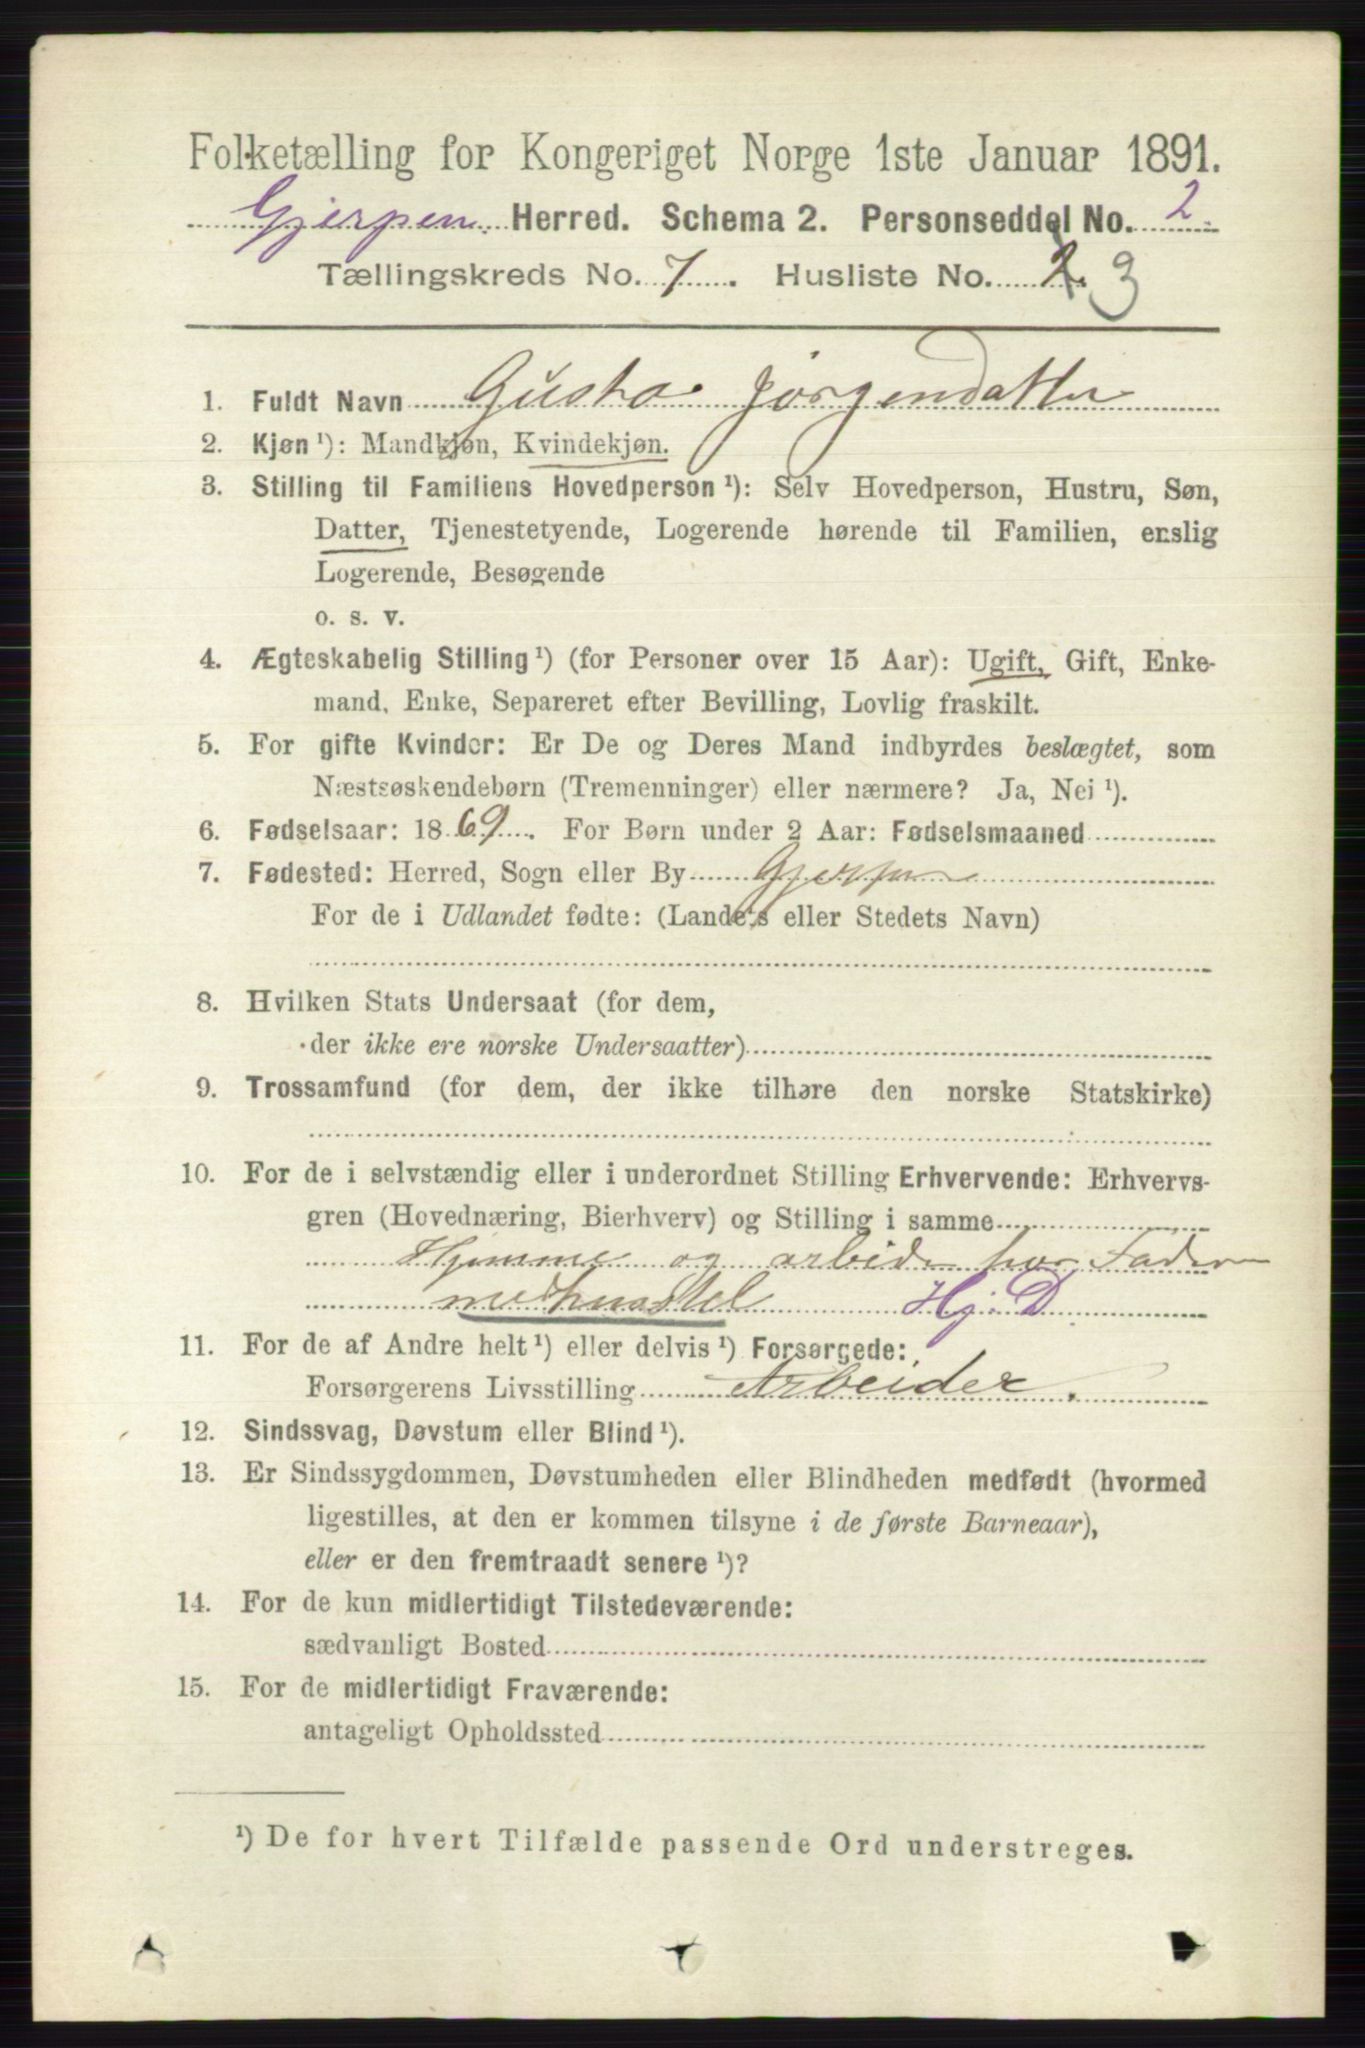 Folketælling for Kongeriget Norge 1ste Januar 1891.
Gjerpen Herred. Schema 2. Personseddel No. 2
Tællingskreds No. 7. Husliste No. 2. 3
1. Fuldt Navn Gusta Jörgendatter
2. Kjøn ¹): Mandkjøn, Kvindekjøn.
3. Stilling til Familiens Hovedperson ¹): Selv Hovedperson, Hustru, Søn,
Datter, Tjenestetyende, Logerende hørende til Familien, enslig
Logerende, Besøgende
o. s. v.
4. Ægteskabelig Stilling ¹) (for Personer over 15 Aar): Ugift, Gift, Enke-
mand, Enke, Separeret efter Bevilling, Lovlig fraskilt.
5. For gifte Kvinder: Er De og Deres Mand indbyrdes beslægtet, som
Næstsøskendebørn (Tremenninger) eller nærmere? Ja, Nei ¹).
6. Fødselsaar: 1869. For Børn under 2 Aar: Fødselsmaaned
7. Fødested: Herred, Sogn eller By Gjerpen
For de i Udlandet fødte: (Landets eller Stedets Navn)
8. Hvilken Stats Undersaat (for dem,
der ikke ere norske Undersaatter)
9. Trossamfund (for dem, der ikke tilhøre den norske Statskirke)
10. For de i selvstændig eller i underordnet Stilling Erhvervende: Erhvervs-
gren (Hovednæring, Bierhverv) og Stilling i samme
Hjemme og arbeider hos Fader
med husstel Hj. D
11. For de af Andre helt ¹) eller delvis ¹) Forsørgede:
Forsørgerens Livsstilling Arbeider.
12. Sindssvag, Døvstum eller Blind ¹).
13. Er Sindssygdommen, Døvstumheden eller Blindheden medfødt (hvormed
ligestilles, at den er kommen tilsyne i de første Barneaar),
eller er den fremtraadt senere ¹)?
14. For de kun midlertidigt Tilstedeværende:
sædvanligt Bosted
15. For de midlertidigt Fraværende:
antageligt Opholdssted
¹) De for hvert Tilfælde passende Ord understreges.